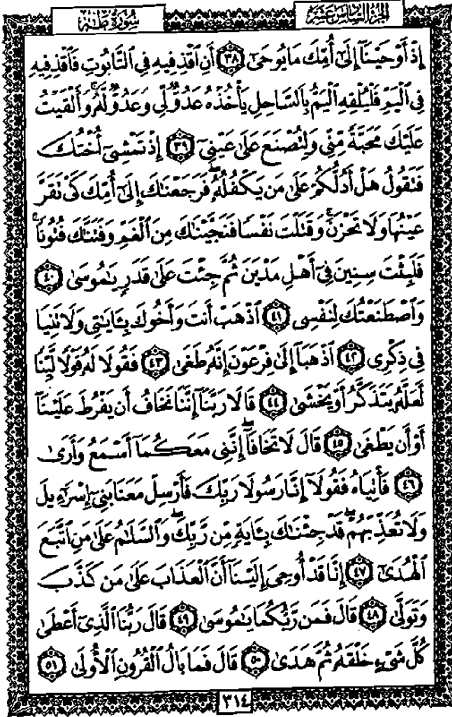 سُورَةُ طه الجزء السادس عشر
إِذْ أَوْحَيْنَآ إِلَىٰٓ أُمِّكَ مَا يُوحَىٰٓ ٣٨ أَنِ ٱقْذِفِيهِ فِى ٱلتَّابُوتِ فَٱقْذِفِيهِ
فِى ٱلْيَمِّ فَلْيُلْقِهِ ٱلْيَمُّ بِٱلسَّاحِلِ يَأْخُذْهُ عَدُوٌّ لِّى وَعَدُوٌّ لَّهُۥ ۚ وَأَلْقَيْتُ
عَلَيْكَ مَحَبَّةً مِّنِّى وَلِتُصْنَعَ عَلَىٰ عَيْنِىٓ ٣٩ إِذْ تَمْشِىٓ أُخْتُكَ
فَتَقُولُ هَلْ أَدُلُّكُمْ عَلَىٰ مَن يَكْفُلُهُۥ ۖ فَرَجَعْنَـٰكَ إِلَىٰٓ أُمِّكَ كَىْ تَقَرَّ
عَيْنُهَا وَلَا تَحْزَنَ ۚ وَقَتَلْتَ نَفْسًا فَنَجَّيْنَـٰكَ مِنَ ٱلْغَمِّ وَفَتَنَّـٰكَ فُتُونًا ۚ
فَلَبِثْتَ سِنِينَ فِىٓ أَهْلِ مَدْيَنَ ثُمَّ جِئْتَ عَلَىٰ قَدَرٍ يَـٰمُوسَىٰ ٤٠
وَٱصْطَنَعْتُكَ لِنَفْسِى ٤١ ٱذْهَبْ أَنتَ وَأَخُوكَ بِـَٔايَـٰتِى وَلَا تَنِيَا
فِى ذِكْرِى ٤٢ ٱذْهَبَآ إِلَىٰ فِرْعَوْنَ إِنَّهُۥ طَغَىٰ ٤٣ فَقُولَا لَهُۥ قَوْلًا لَّيِّنًا
لَّعَلَّهُۥ يَتَذَكَّرُ أَوْ يَخْشَىٰ ٤٤ قَالَا رَبَّنَآ إِنَّنَا نَخَافُ أَن يَفْرُطَ عَلَيْنَآ
أَوْ أَن يَطْغَىٰ ٤٥ قَالَ لَا تَخَافَآ ۖ إِنَّنِى مَعَكُمَآ أَسْمَعُ وَأَرَىٰ
٤٦ فَأْتِيَاهُ فَقُولَآ إِنَّا رَسُولَا رَبِّكَ فَأَرْسِلْ مَعَنَا بَنِىٓ إِسْرَٰٓءِيلَ
وَلَا تُعَذِّبْهُمْ ۖ قَدْ جِئْنَـٰكَ بِـَٔايَةٍ مِّن رَّبِّكَ ۖ وَٱلسَّلَـٰمُ عَلَىٰ مَنِ ٱتَّبَعَ
ٱلْهُدَىٰٓ ٤٧ إِنَّا قَدْ أُوحِىَ إِلَيْنَآ أَنَّ ٱلْعَذَابَ عَلَىٰ مَن كَذَّبَ
وَتَوَلَّىٰ ٤٨ قَالَ فَمَن رَّبُّكُمَا يَـٰمُوسَىٰ ٤٩ قَالَ رَبُّنَا ٱلَّذِىٓ أَعْطَىٰ
كُلَّ شَىْءٍ خَلْقَهُۥ ثُمَّ هَدَىٰ ٥٠ قَالَ فَمَا بَالُ ٱلْقُرُونِ ٱلْأُولَىٰ ٥١
٣١٤